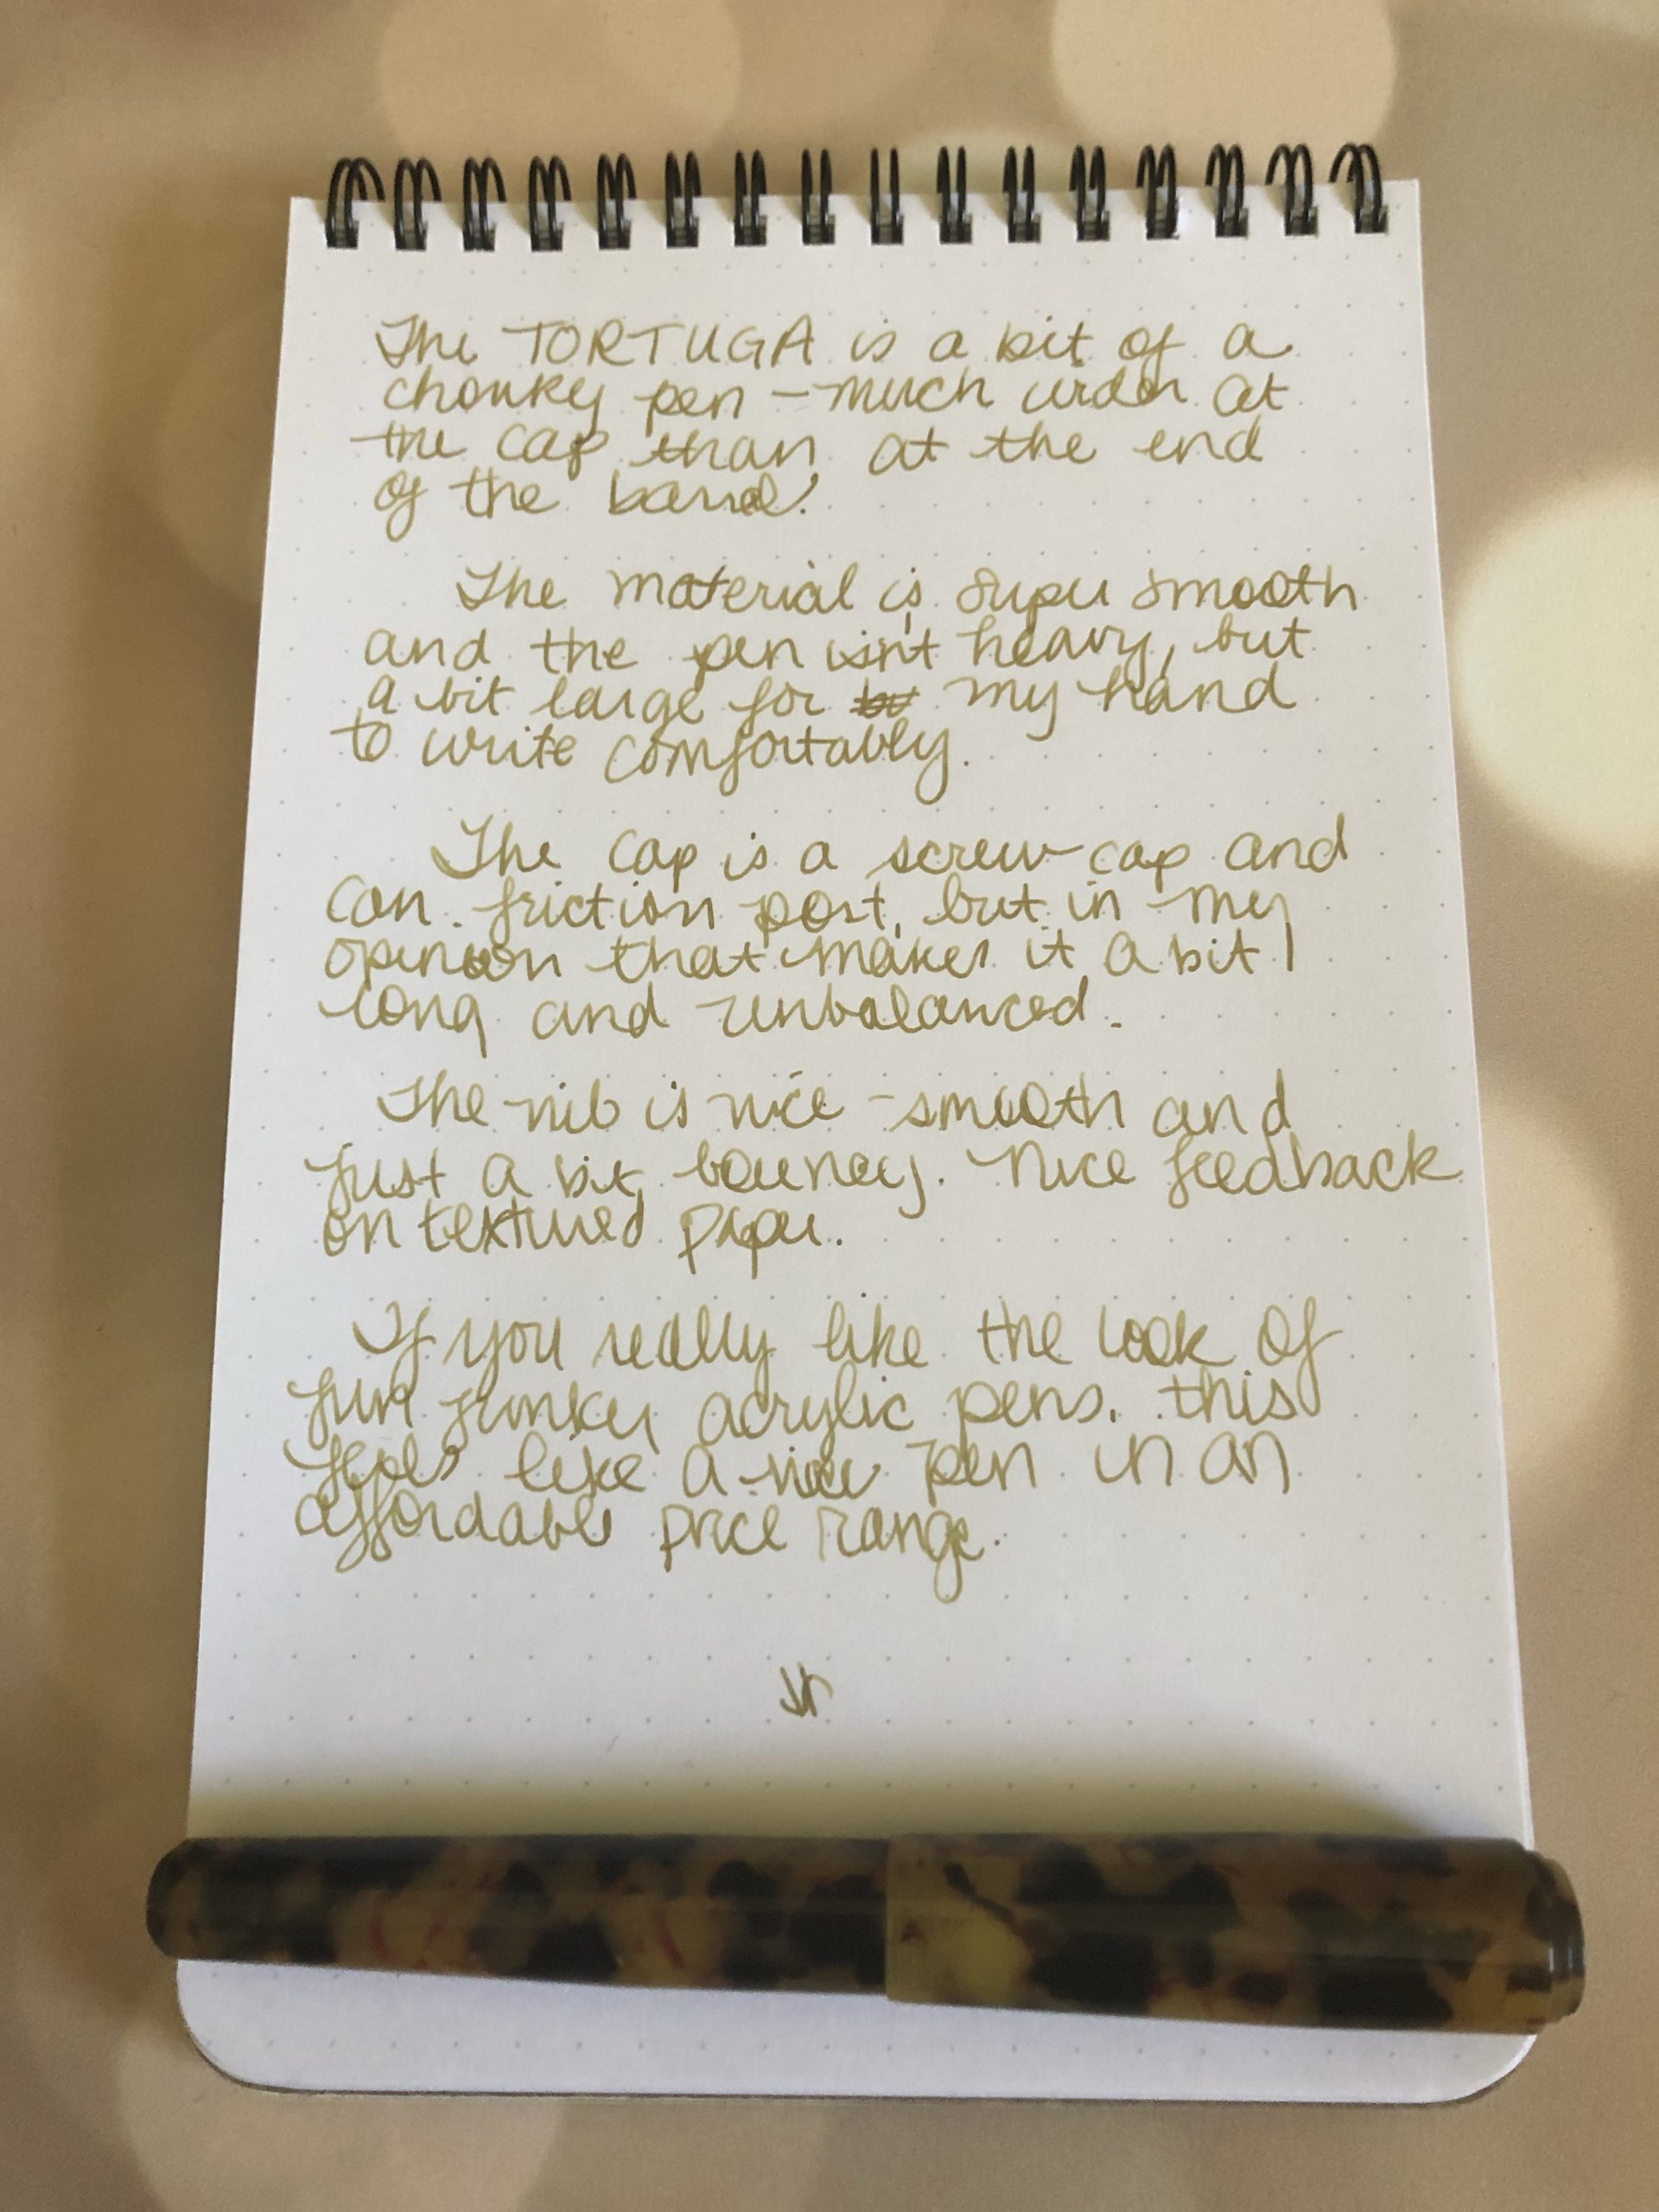 The TORTUGA is a bit of a
chonky pen - much wider at
the cap than at the end
of the barrel.
The material is super smooth
and the pen isn't heavy, but
a bit large for my hand
to write comfortably.
The cap is a screw-cap and
can friction post, but in my
opinion that makes it a bit
long and unbalanced.
The nib is nice - smooth and
just a bit bouncy. Nice feedback
on textured paper.
If you really like the look of
fun funky acrylic pens, this
feels like a nice pen in an
affordable price range.